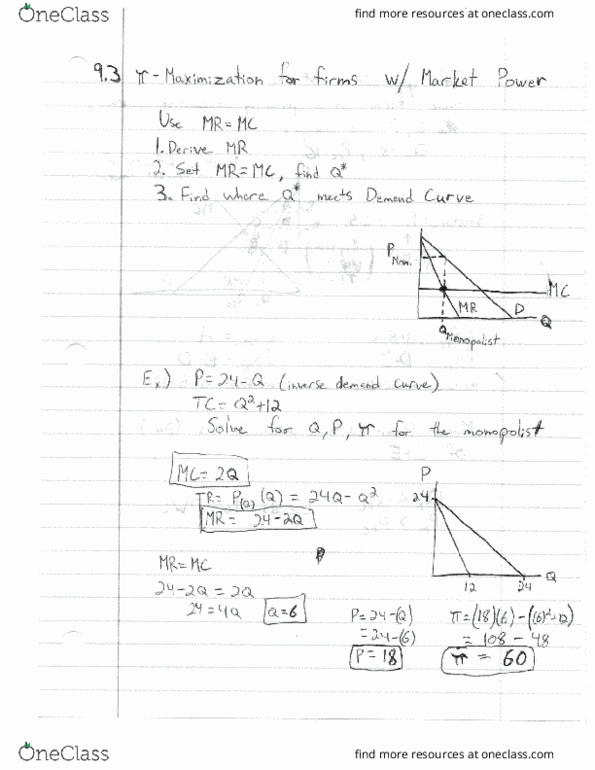 OneClass
find more resources at oneclass.com
9.3 π-Maximization for firms w/ Market Power
Use MR=MC
1. Derive MR
2. Set MR=MC, find Q*
3. Find where Q* meets Demand Curve
P Mon.
MC
MR
D
Q
Q Monopolist
Ex.) P=24-Q (inverse demand curve)
TC=Q²+12
Solve for Q, P, π for the monopolist
MC=2Q
TR=P(Q)(Q) = 24Q-Q²
MR= 24-2Q
P
24
12
24
Q
MR=MC
24-2Q=2Q
24=4Q
Q=6
P=24-(Q)
=24-(6)
P=18
π=(18)(6)-((6)²+12)
= 108-48
π = 60
OneClass
find more resources at oneclass.com